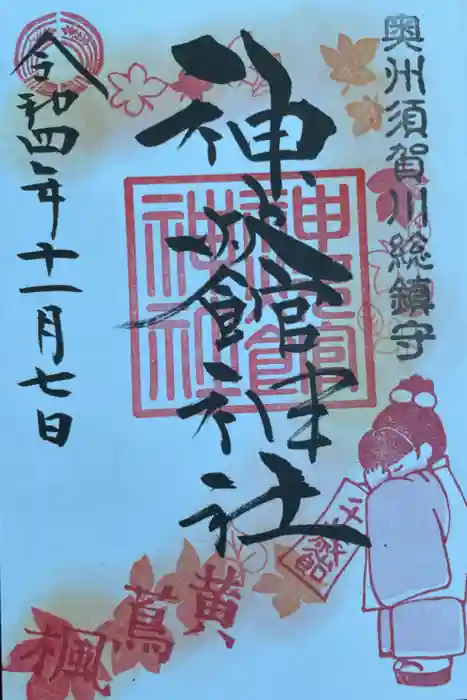 奥州須賀川総鎮守
神炊館神社
神炊館
神社
令和四年十一月七日
千歳飴
黄蔦楓